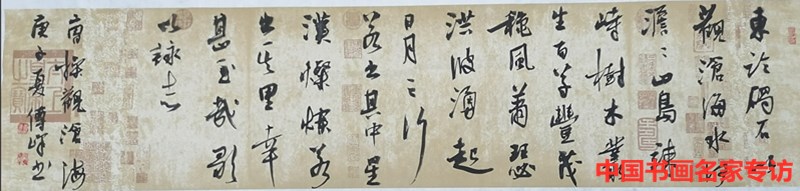 東臨碣石以
觀滄海水何
澹〻山島竦
峙樹木叢
生百草豐茂
秋風蕭瑟
洪波涌起
日月之行
若出其中星
漢燦爛若
出其里幸
甚至哉歌
以詠志
曹操觀滄海
庚子夏傅峰书
中国书画名家专访